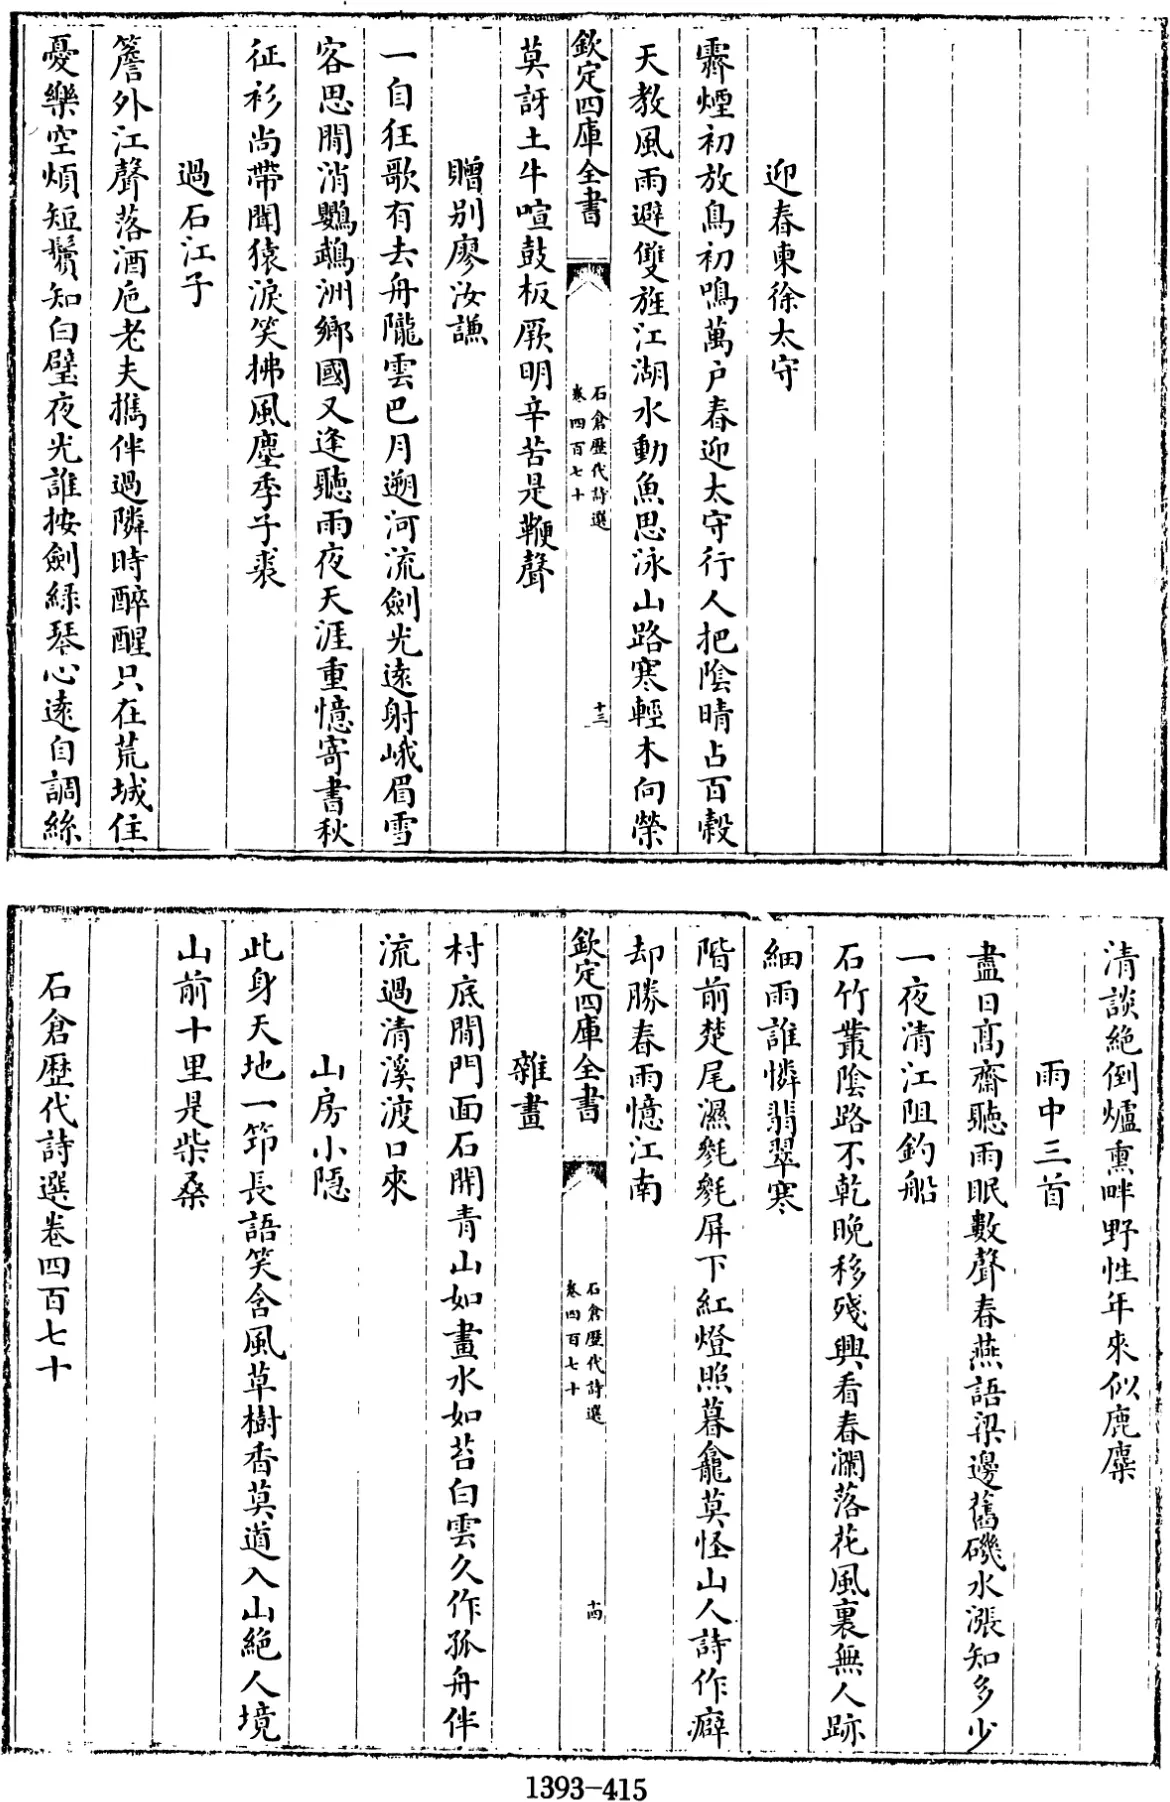 迎春柬徐太守
霽煙初放鳥初鳴萬户春迎太守行人把陰晴占百穀
天教風雨避雙旌江湖水動魚思泳山路寒輕木向榮
欽定四庫全書
石倉歷代詩選
卷四百七十
十三
莫訝土牛喧鼓板厥明辛苦是鞭聲
贈别廖汝謙
一自狂歌有去舟隴雲巴月遡河流劍光遠射峨眉雪
客思閒消鸚鵡洲鄉國又逢聽雨夜天涯重憶寄書秋
征衫尚帶聞猿淚笑拂風塵季子裘
過石江子
簷外江聲落酒巵老夫攜伴過隣時醉醒只在荒城住
憂樂空煩短鬢知白璧夜光誰按劍緑琴心遠自調絲
清談絶倒爐熏畔野性年來似鹿麋
雨中三首
盡日髙齋聽雨眠數聲春燕語梁邊舊磯水漲知多少
一夜清江阻釣船
石竹叢陰路不乾晚移殘興看春瀾落花風裏無人跡
細雨誰憐翡翠寒
階前楚尾濕毿毿屏下紅燈照暮龕莫怪山人詩作癖
却勝春雨憶江南
欽定四庫全書
石倉歷代詩選
卷四百七十
十四
雜畫
村底閒門面石開青山如畫水如苔白雲久作孤舟伴
流過清溪渡口來
山房小隱
此身天地一笻長語笑含風草樹香莫道入山絶人境
山前十里是柴桑
石倉歷代詩選卷四百七十
1393-415